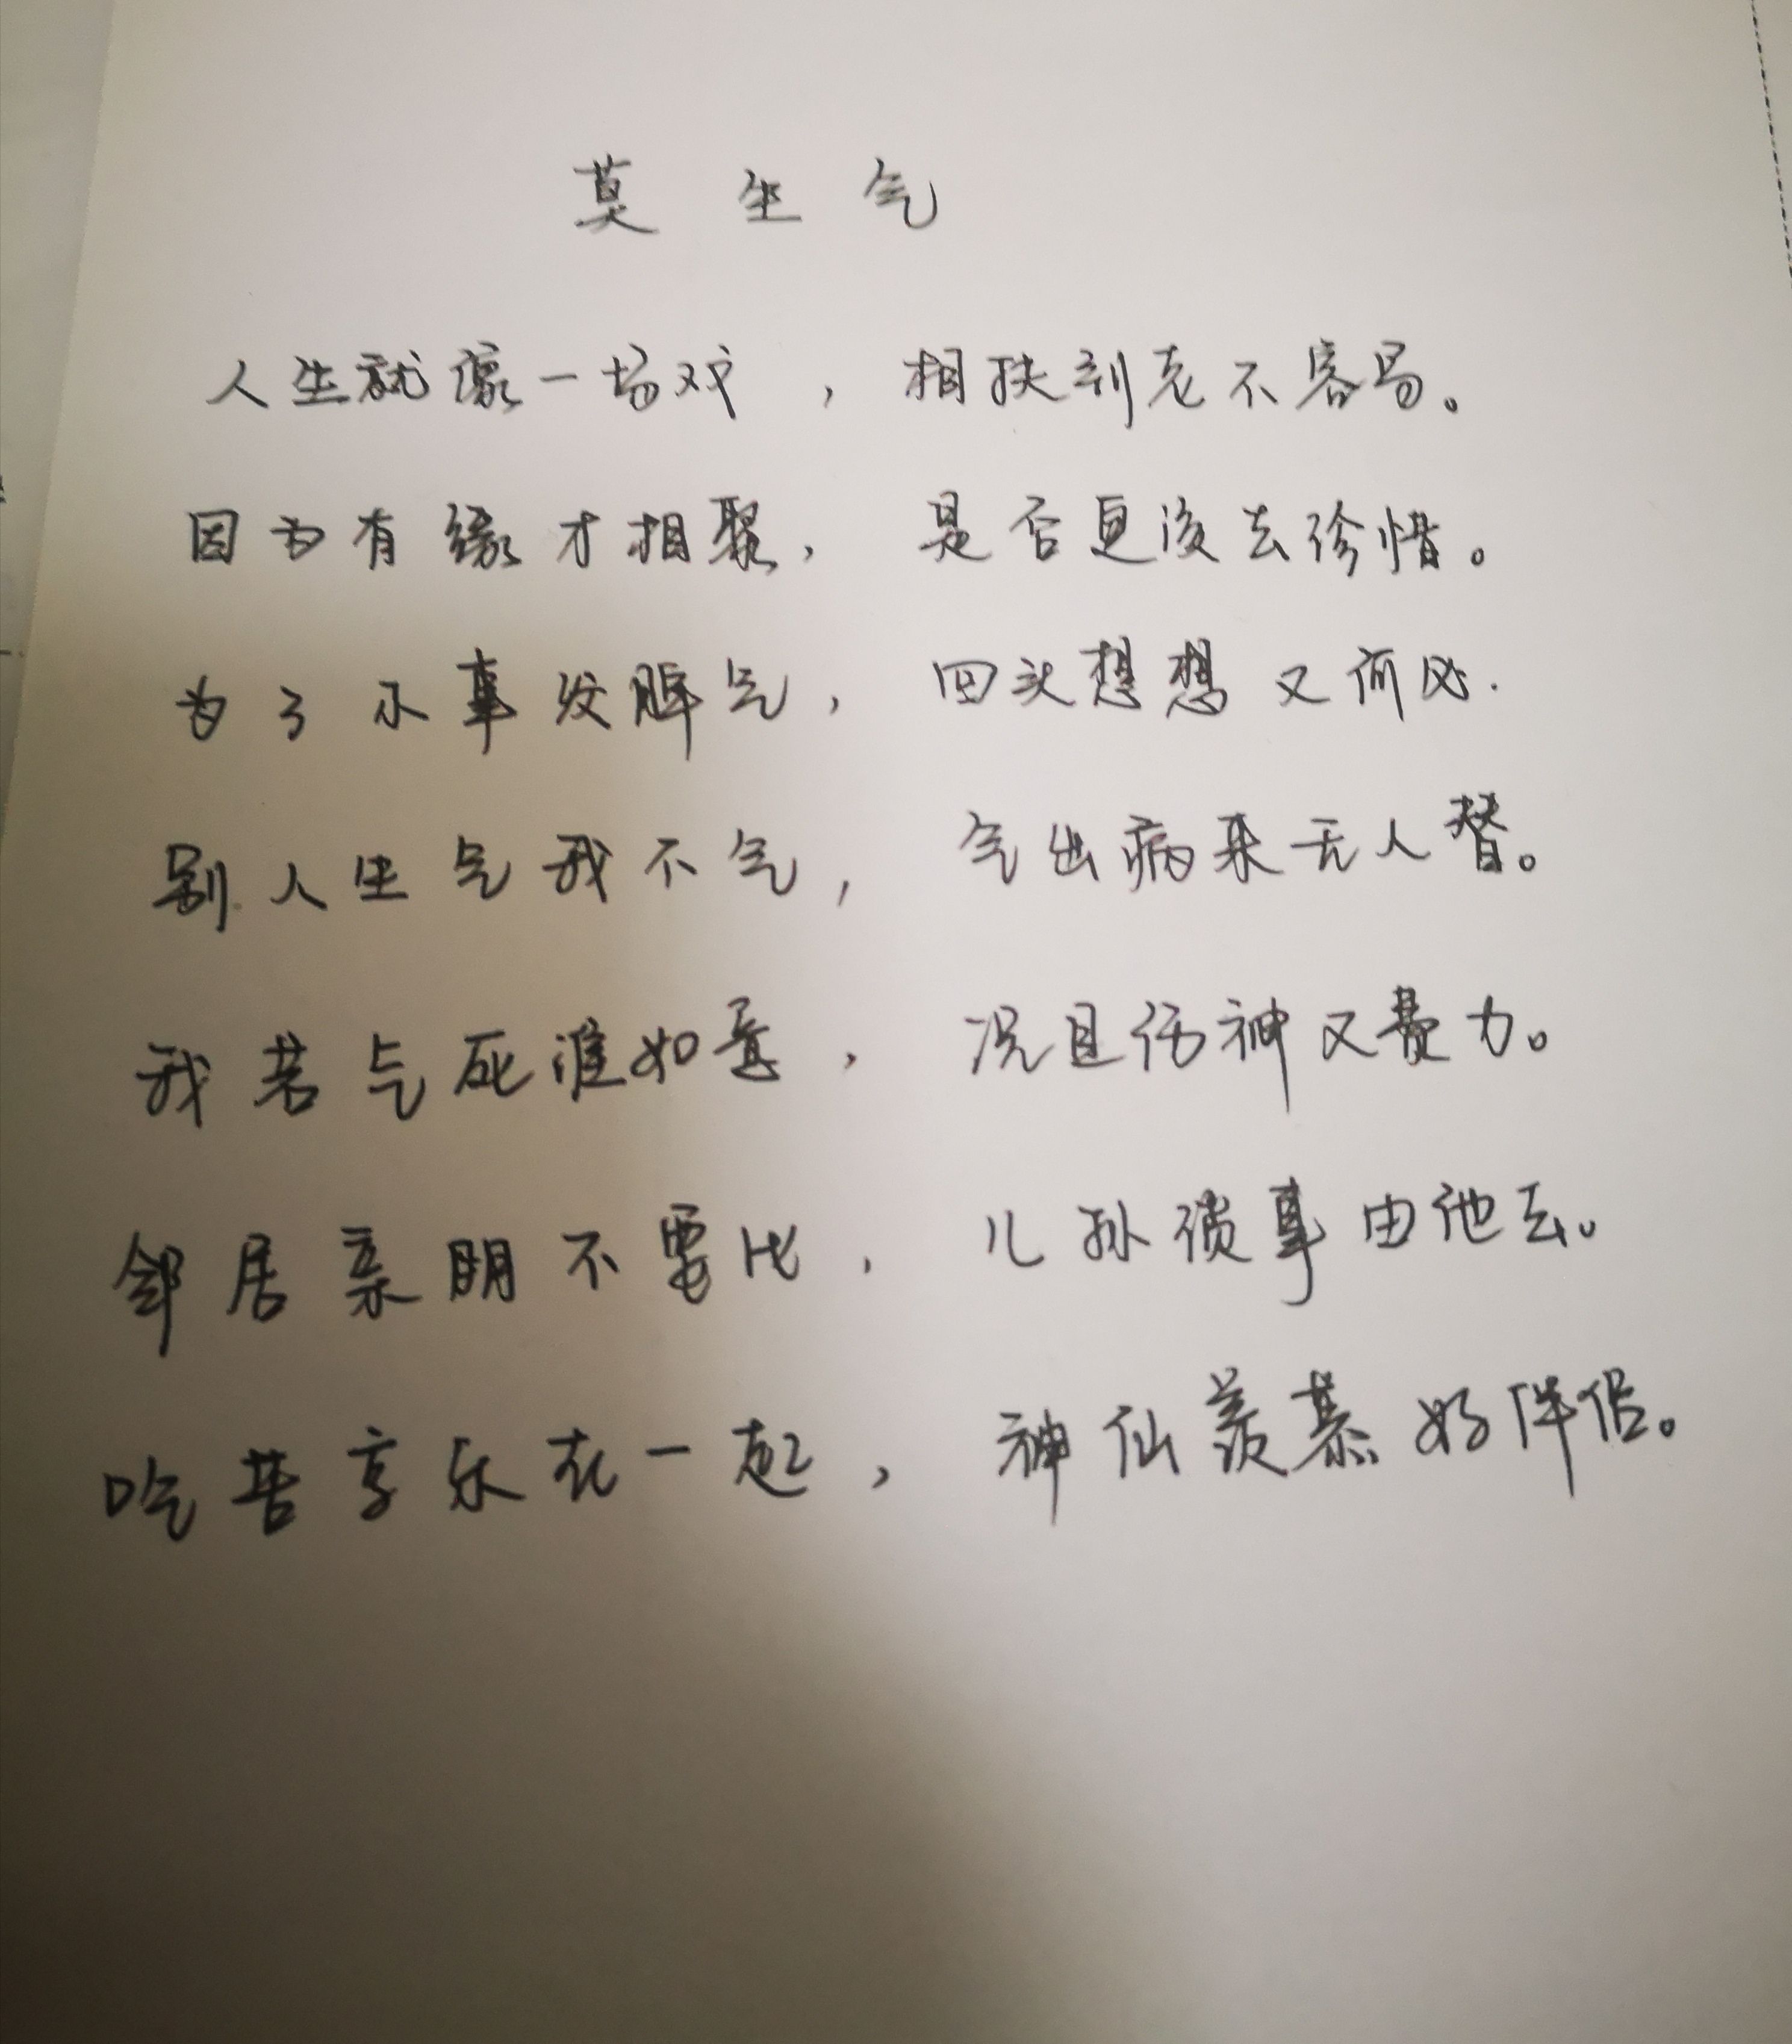 莫生气
人生就像一场戏，相扶到老不容易。
因为有缘才相聚，是否更该去珍惜。
为了小事发脾气，回头想想又何必.
别人生气我不气，气出病来无人替。
我若气死谁如意，况且伤神又费力。
邻居亲朋不要比，儿孙琐事由他去。
吃苦享乐在一起，神仙羡慕好伴侣。